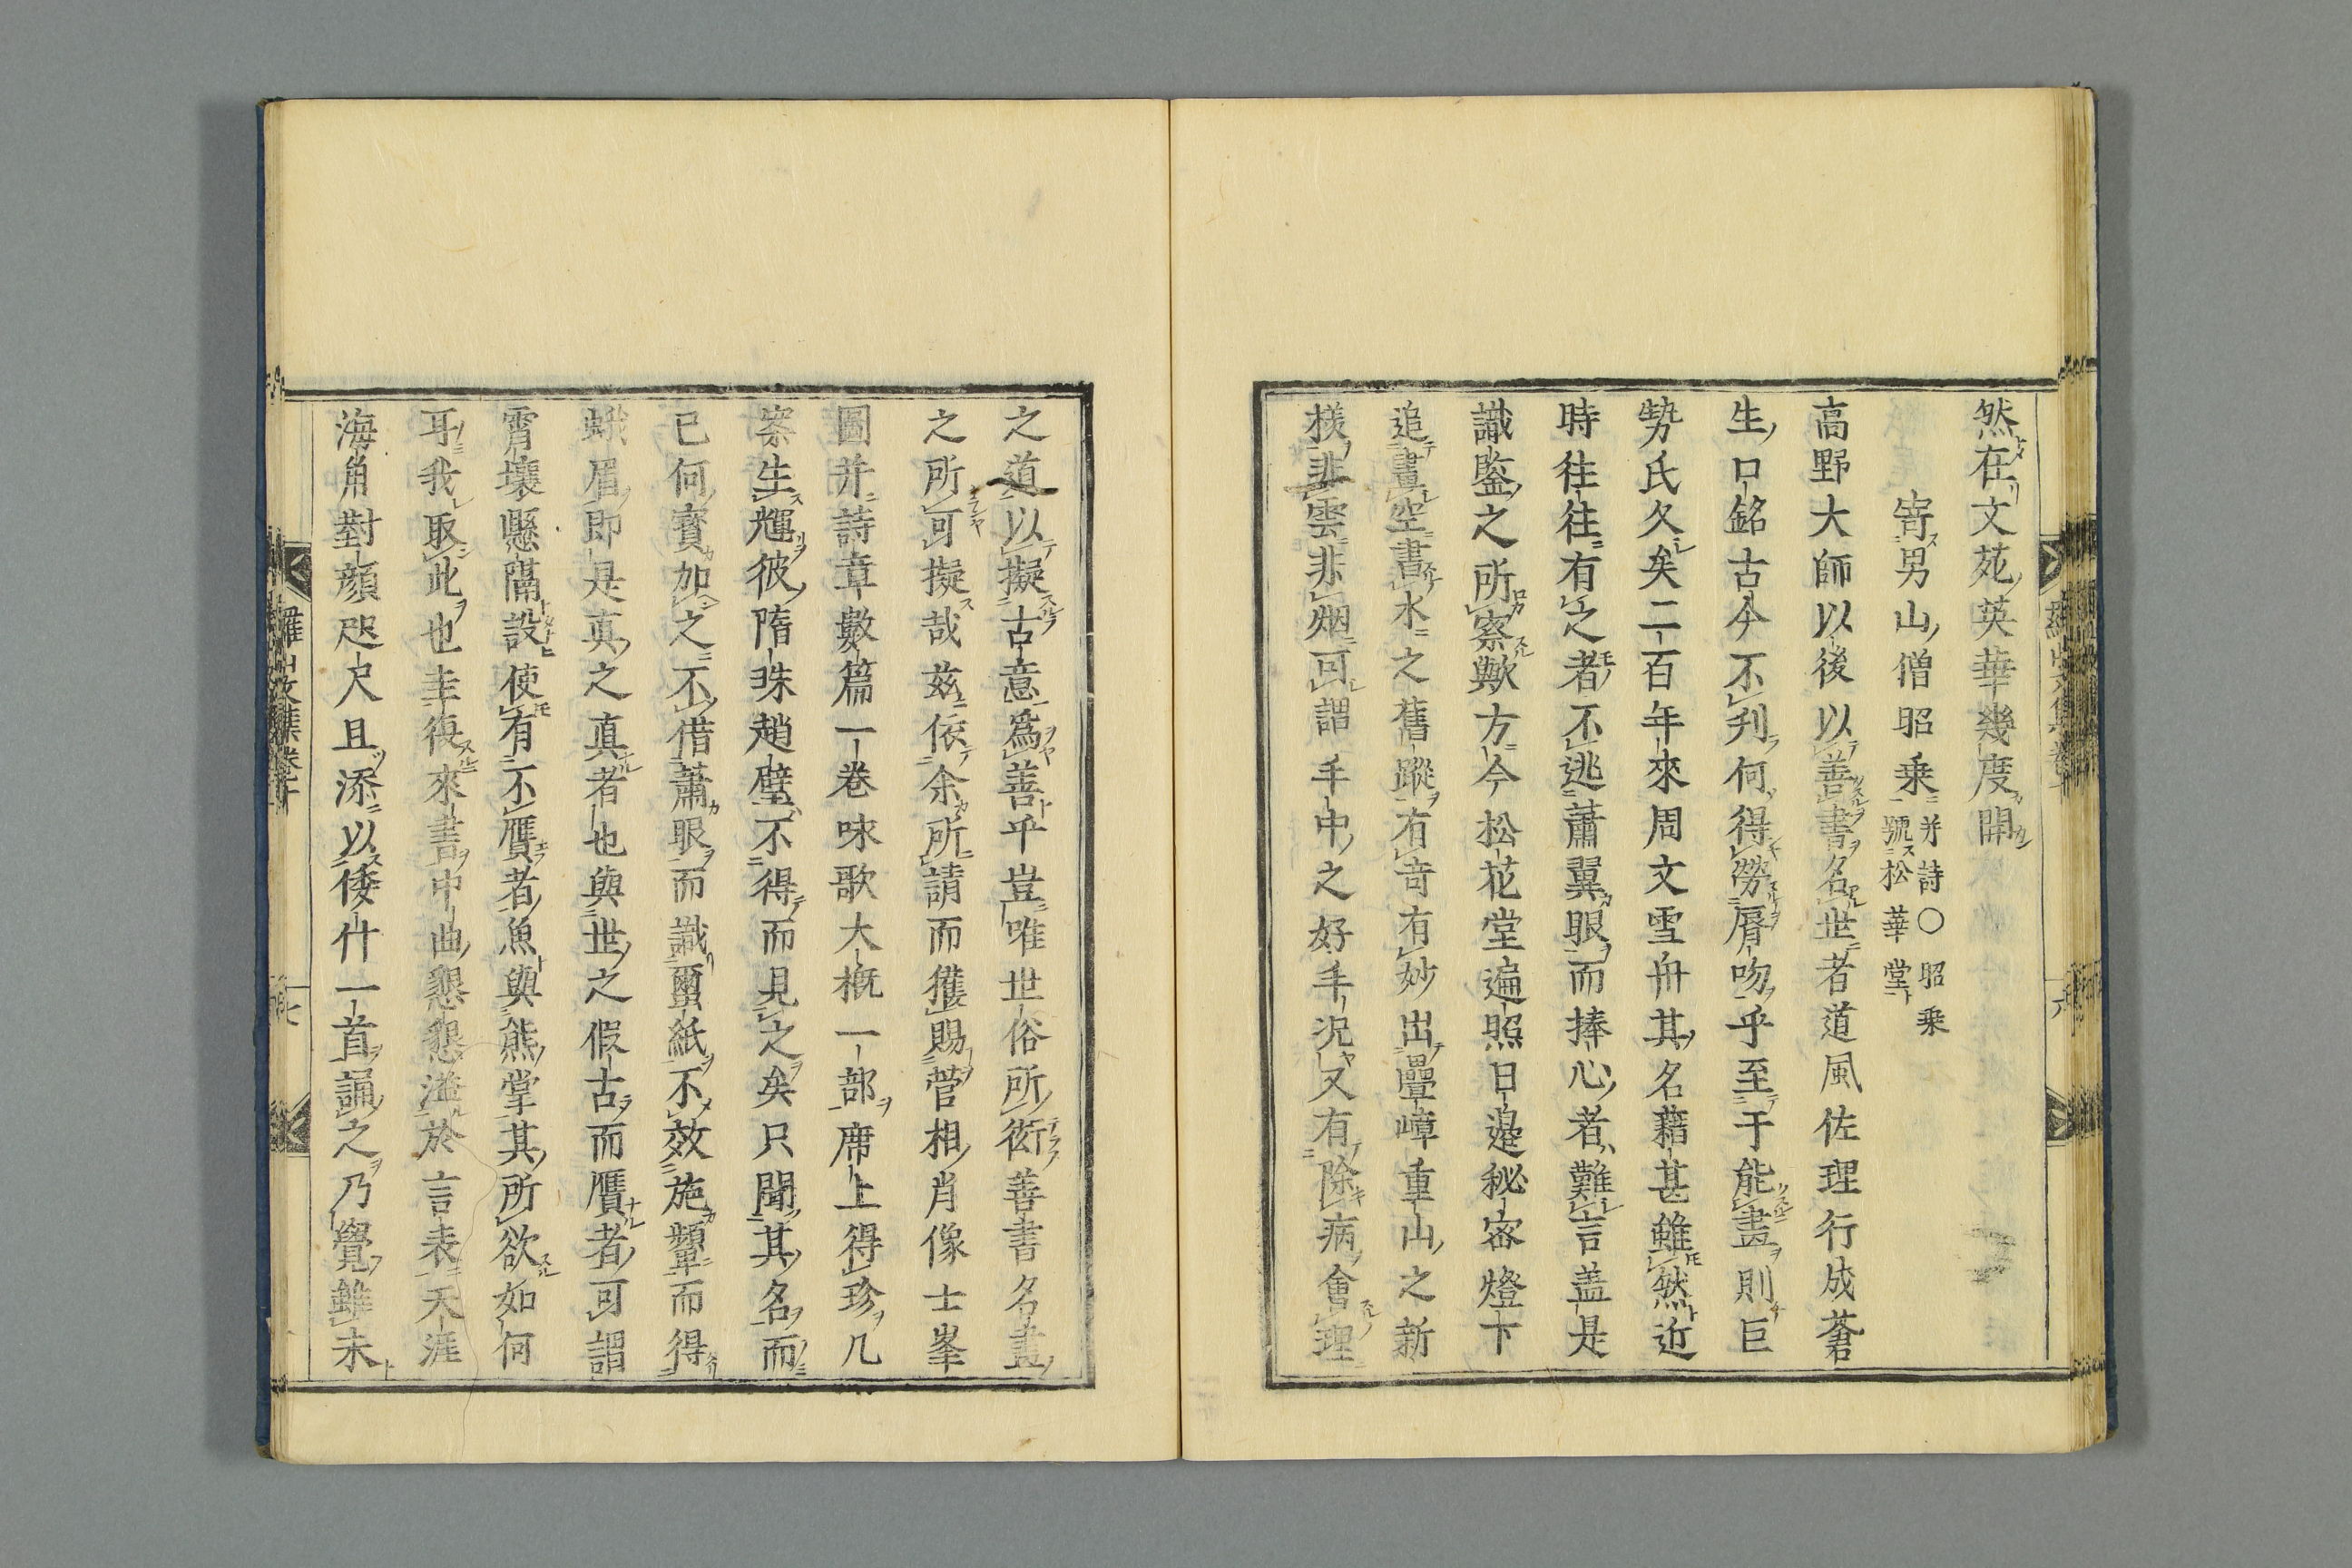 然在文苑英華幾度開
寄男山僧昭乗 并詩〇昭乗
號松華堂
高野大師以後以善書名世者道風佐理行成蒼
生口銘古今不刋何得勞脣吻乎至于能畫則巨
㔟氏久矣二百年來周文雪舟其名藉甚雖然近
時往往有之者不逃蕭翼眼而捧心者難言盖是
識鑒之所察歟方今松花堂遍照日邉秘密燈下
追畫空書水之舊蹤有竒有妙出疊嶂重山之新
様非雲非烟可謂手中之好手況又有除病會理
之道以擬古意爲善乎豈唯世俗所衒善書名畫
之所可擬哉兹依余所請而獲賜菅相肖像士峯
圖并詩章數篇一巻咏歌大概一部席上得珍几
案生輝彼隋珠趙璧不得而見之矣只聞其名而
已何賓加之不借蕭眼而識蠒紙不效施顰而得
蛾眉即是真之真者也與世之假古而贋者可謂
霄壤懸隔設使有不贋者魚與熊掌其所欲如何
耳我取此也圭復來書中曲懇懇溢於言表天涯
海角對顔咫尺且添以倭什一首誦之乃覺雖未
羅山文集巻
七
六